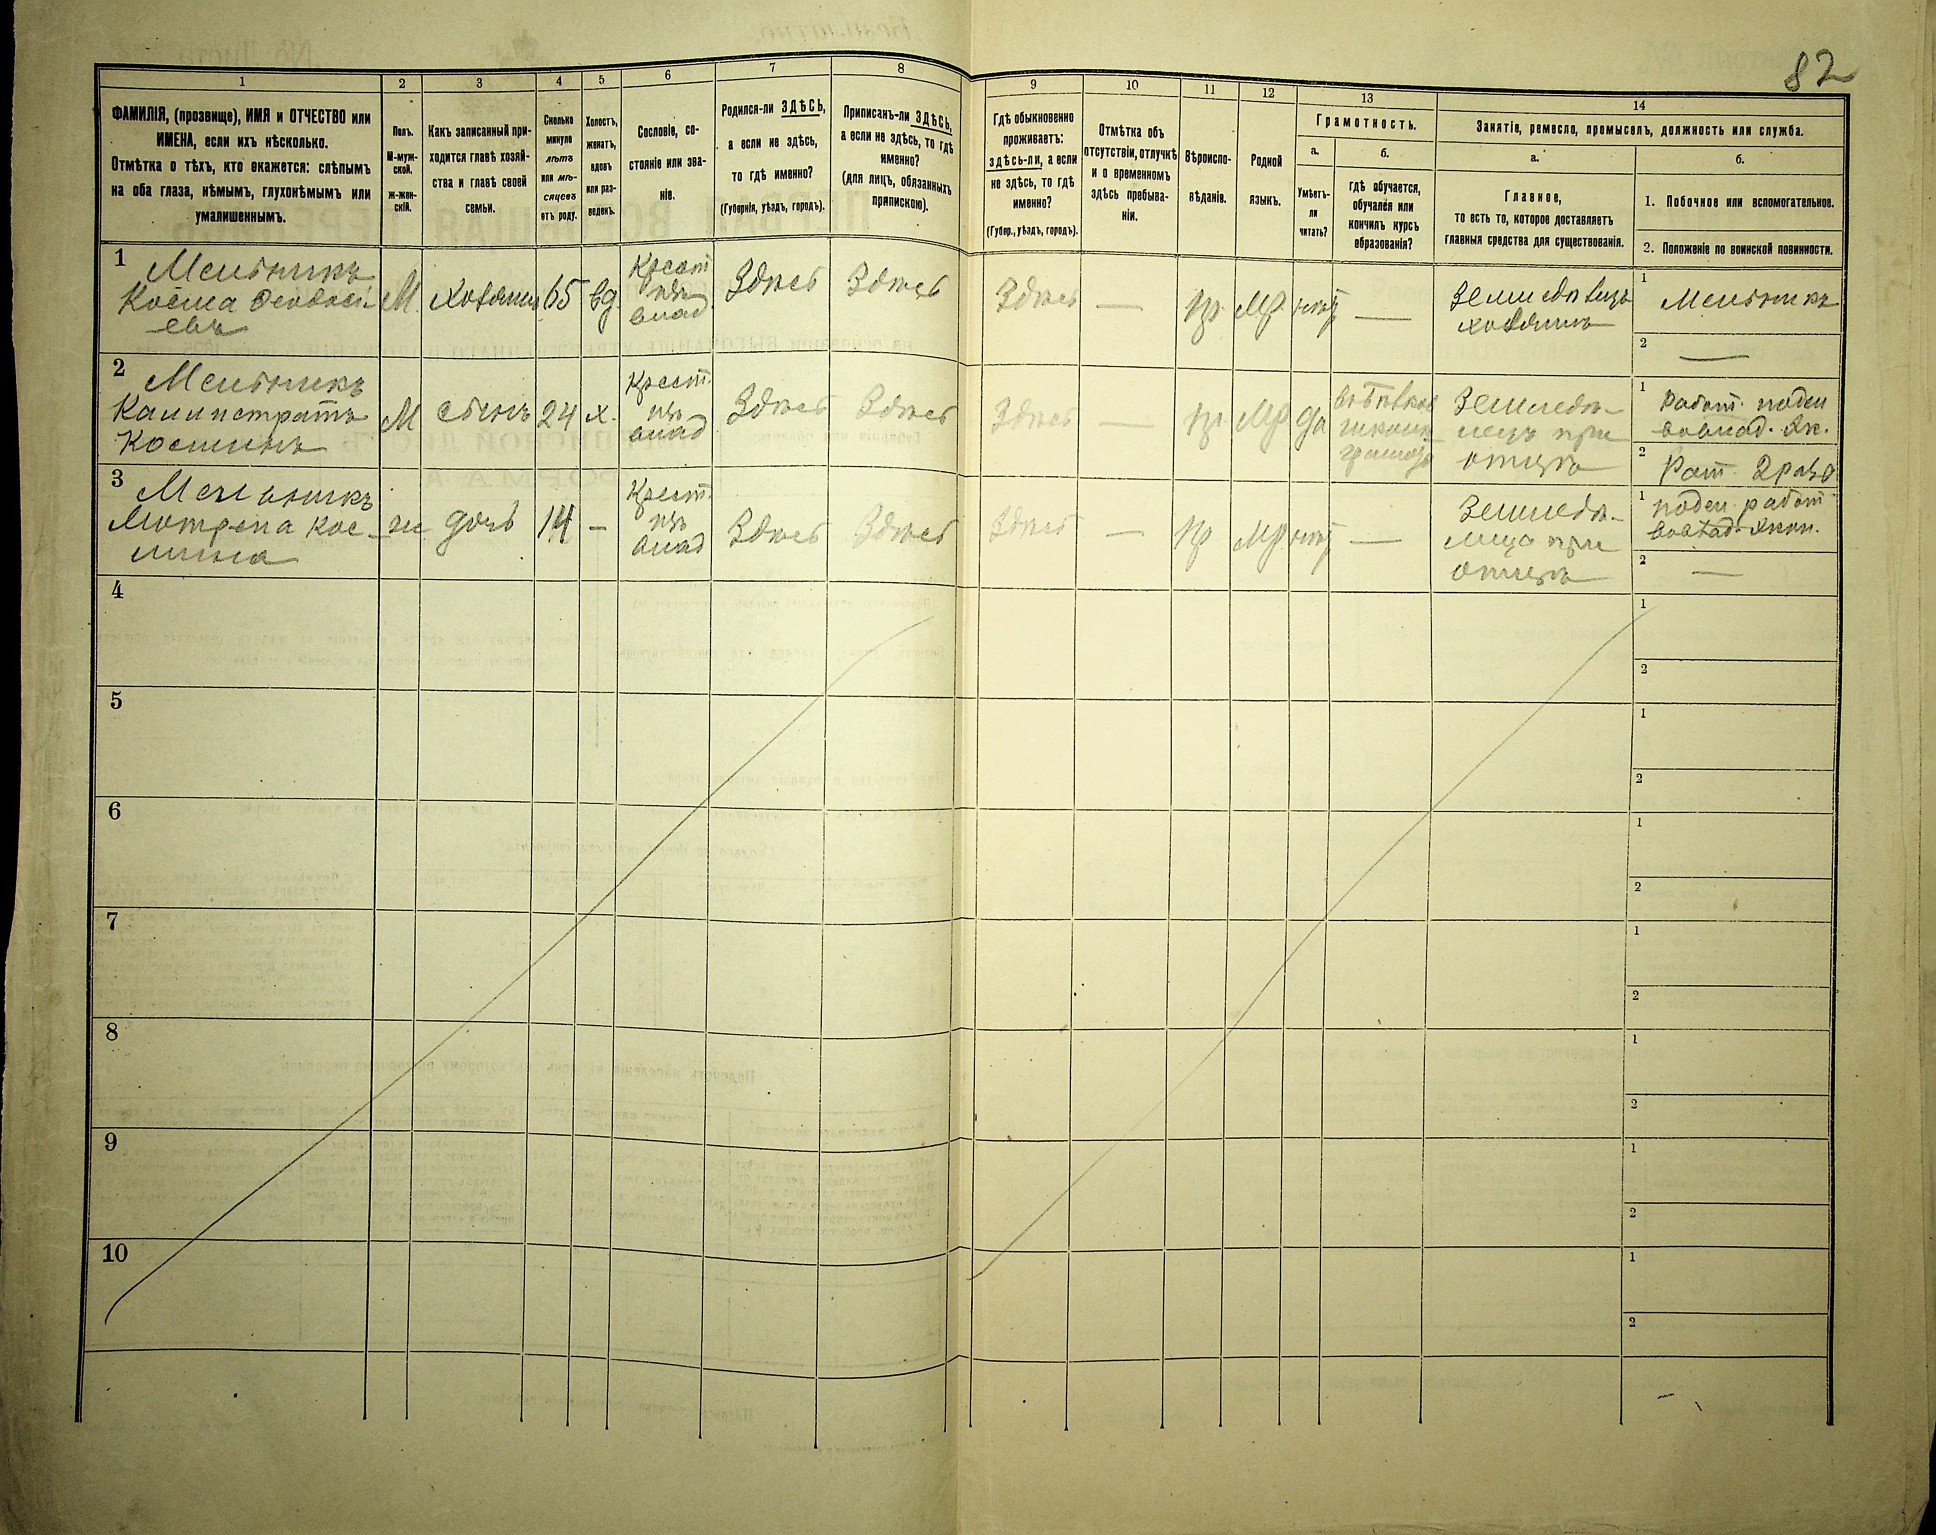 82
1 2 3 4 5 6 7 8 9 10 11 12 13 14
ФАМИЛІЯ, (прозвище), ИМЯ и ОТЧЕСТВО или
ИМЕНА, если ихъ нѣсколько.
Отмѣтка о тѣхъ, кто окажется: слѣпымъ
на оба глаза, нѣмымъ, глухонѣмымъ или
умалишеннымъ.
Полъ.
М-муж-
ской.
Ж-жен-
скій.
Какъ записанный при-
ходится главѣ хозяй-
ства и главѣ своей
семьи.
Сколько
минуло
лѣтъ
или мѣ-
сяцевъ
отъ роду.
Холостъ,
женатъ,
вдовъ
или раз-
веденъ.
Сословіе, со-
стояніе или зва-
ніе.
Родился-ли ЗДѢСЬ,
а если не здѣсь,
то гдѣ именно?
(Губернія, уѣздъ, городъ).
Приписанъ-ли ЗДѢСЬ,
а если не здѣсь, то гдѣ
именно?
(для лицъ, обязанныхъ
припискою).
Гдѣ обыкновенно
проживаетъ:
здѣсь-ли, а если
не здѣсь, то гдѣ
именно?
(Губер., уѣздъ, городъ).
Отмѣтка объ
отсутствіи, отлучкѣ
и о временномъ
здѣсь пребыва-
ніи.
Вѣроиспо-
вѣданіе.
Родной
языкъ.
Грамотность.
а.
Умѣетъ-
ли
читать?
б.
Гдѣ обучается,
обучался или
кончилъ курсъ
образованія?
Занятіе, ремесло, промыселъ, должность или служба.
а.
Главное,
то есть то, которое доставляетъ
главныя средства для существованія.
б.
1. Побочное или вспомогательное.
2. Положеніе по воинской повинности.
1
Мельникъ
Косма Феодосі-
евъ
М. хозяинъ 65 вд.
Крест.
изъ
влад.
Здѣсь Здѣсь Здѣсь — пр. Мр. нѣтъ —
Земледѣлецъ
хозяинъ
1 Мельникъ
2 —
2
Мельникъ
Каллистратъ
Косминъ
М сынъ 24 х.
Крест.
изъ
влад
Здѣсь Здѣсь Здѣсь — пр. Мр. да
Земледѣ-
лецъ при
отцѣ
1 Работ. поден
2
3
Мельникъ
Мотрена Кос-
мина
ж дочь 14 —
Крест.
изъ
влад
Здѣсь Здѣсь Здѣсь — пр Мр. нѣтъ —
Земледѣ-
лица при
отцѣ
1 поден. работ
2 —
4 1
2
5 1
2
6 1
2
7 1
2
8 1
2
9 1
2
10 1
2